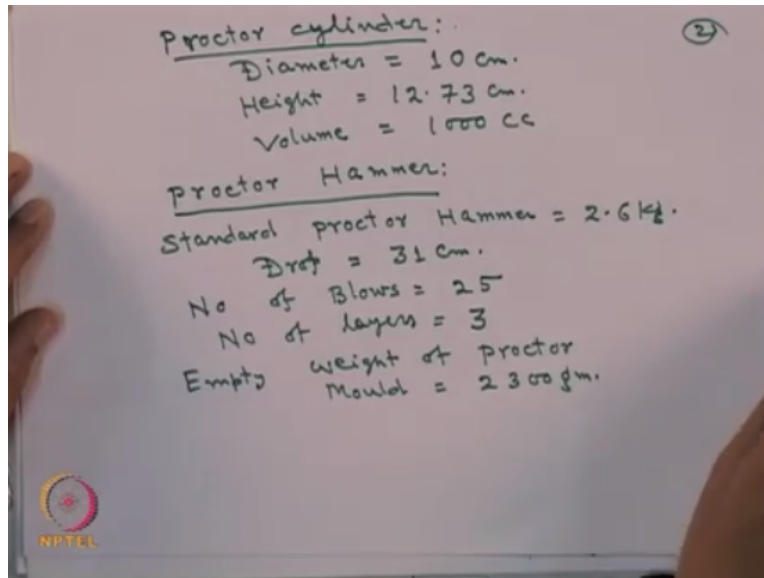 Proctor cylinder:
②
Diameter = 10 cm.
Height = 12.73 cm.
Volume = 1000 cc
Proctor Hammer:
Standard proctor Hammer = 2.6 kg.
Drop = 31 cm.
No of Blows = 25
No of layers = 3
Empty weight of proctor
Mould = 2300 gm.
NPTEL